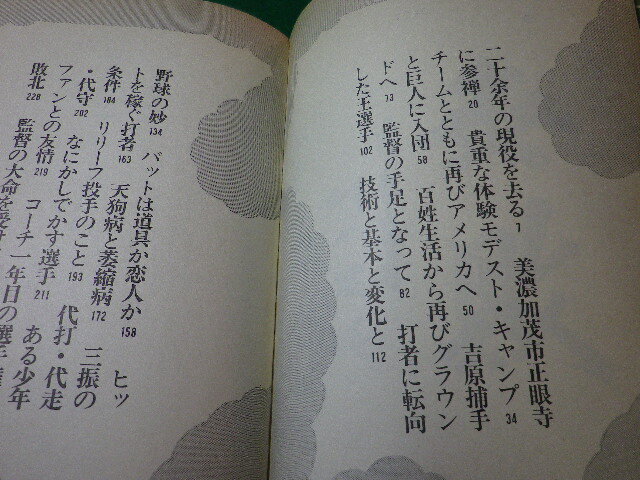 二十余年の現役を去る 1　美濃加茂市正眼寺
に参禅 20　貴重な体験モデスト・キャンプ 34
チームとともに再びアメリカへ 50　吉原捕手
と巨人に入団 58　百姓生活から再びグラウン
ドへ 73　監督の手足となって 82　打者に転向
した王選手 102　技術と基本と変化と 112
野球の妙 134　バットは道具か恋人か 158　ヒッ
トを稼ぐ打者 163　天狗病と萎縮病 172　三振の
条件 184　リリーフ投手のこと 193　代打・代走
・代守 202　なにかしでかす選手 211　ある少年
ファンとの友情 219　コーチ一年目の選手
敗北 228　監督の大命を受け